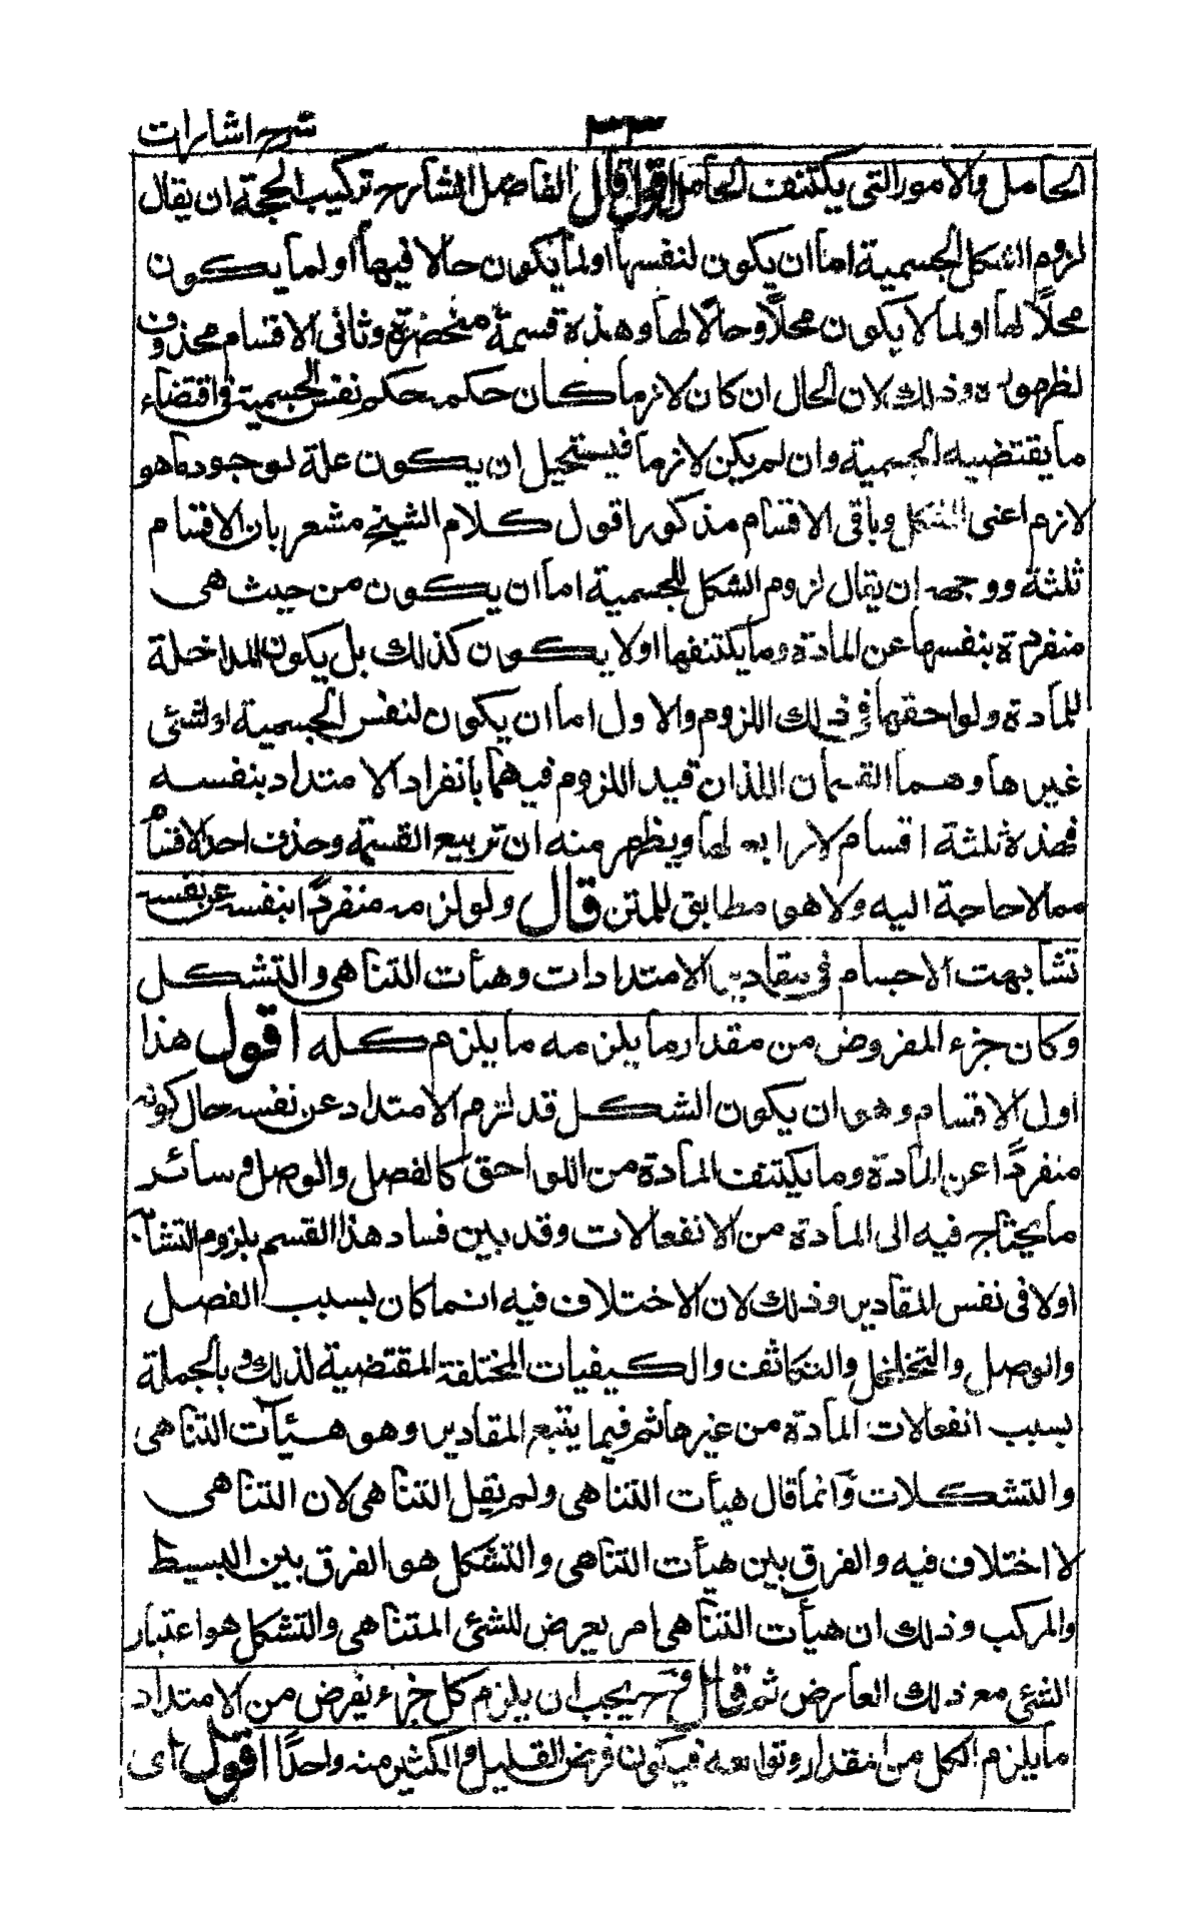 شرح اشارات
٣٣
الحامل والامور التي يكتنف الحامل اقول قال الفاضل الشارح تركيب الحجة ان يقال
لزوم الشكل الجسمية اما ان يكون لنفسها او لما يكون حالا فيها او لما يكون
محلا لها او لما لا يكون محلا وحالا لها وهذه قسمة منحصرة وثانى الاقسام محذوف
لظهوره وذلك لان الحال ان كان لازما كان حكمه حكم نفس الجسمية فى اقتضاء
ما يقتضيه الجسمية وان لم يكن لازما فيستحيل ان يكون علة لوجود ما هو
لازم اعنى الشكل وباقى الاقسام مذكور اقول كلام الشيخ مشعر بان الاقسام
ثلثة ووجهه ان يقال لزوم الشكل للجسمية اما ان يكون من حيث هى
منفردة بنفسها عن المادة وما يكتنفها او لا يكون كذلك بل يكون للمداخلة
للمادة ولواحقها فى ذلك اللزوم والاول اما ان يكون لنفس الجسمية او لشئ
غيرها وهما القسمان اللذان قيد اللزوم فيهما بانفراد الامتداد بنفسه
فهذه ثلثة اقسام لا رابع لها ويظهر منه ان تربيع القسمة وحذف احد الاقسام
مما لا حاجة اليه ولا هو مطابق للمتن قال ولو لزمه منفردا بنفسه عن نفسه
تشابهت الاجسام فى مقادير الامتدادات وهيأت التناهى والتشكل
وكان جزء المفروض من مقدار ما يلزمه ما يلزم كله اقول هذا
اول الاقسام وهو ان يكون الشكل قد لزم الامتداد عن نفسه حال كونه
منفردا عن المادة وما يكتنف المادة من اللواحق كالفصل والوصل وسائر
ما يحتاج فيه الى المادة من الانفعالات وقد بين فساد هذا القسم بلزوم التشابه
اولا فى نفس المقادير وذلك لان الاختلاف فيه انما كان بسبب الفصل
والوصل والتخلخل والتكاثف والكيفيات المختلفة المقتضية لذلك وبالجملة
بسبب انفعالات المادة من غيرها ثم فيما يتبع المقادير وهو هيئآت التناهى
والتشكلات وانما قال هيأت التناهى ولم يقل التناهى لان التناهى
لا اختلاف فيه والفرق بين هيأت التناهى والتشكل هو الفرق بين البسيط
والمركب وذلك ان هيأت التناهى امر يعرض للشئ المتناهى والتشكل هو اعتبار
الشئ مع ذلك العارض ثم قال فح يجب ان يلزم كل جزء يفرض من الامتداد
ما يلزم الكل من مقدار وتوابعه فيكون فرض القليل والكثير منه واحدا اقول اى